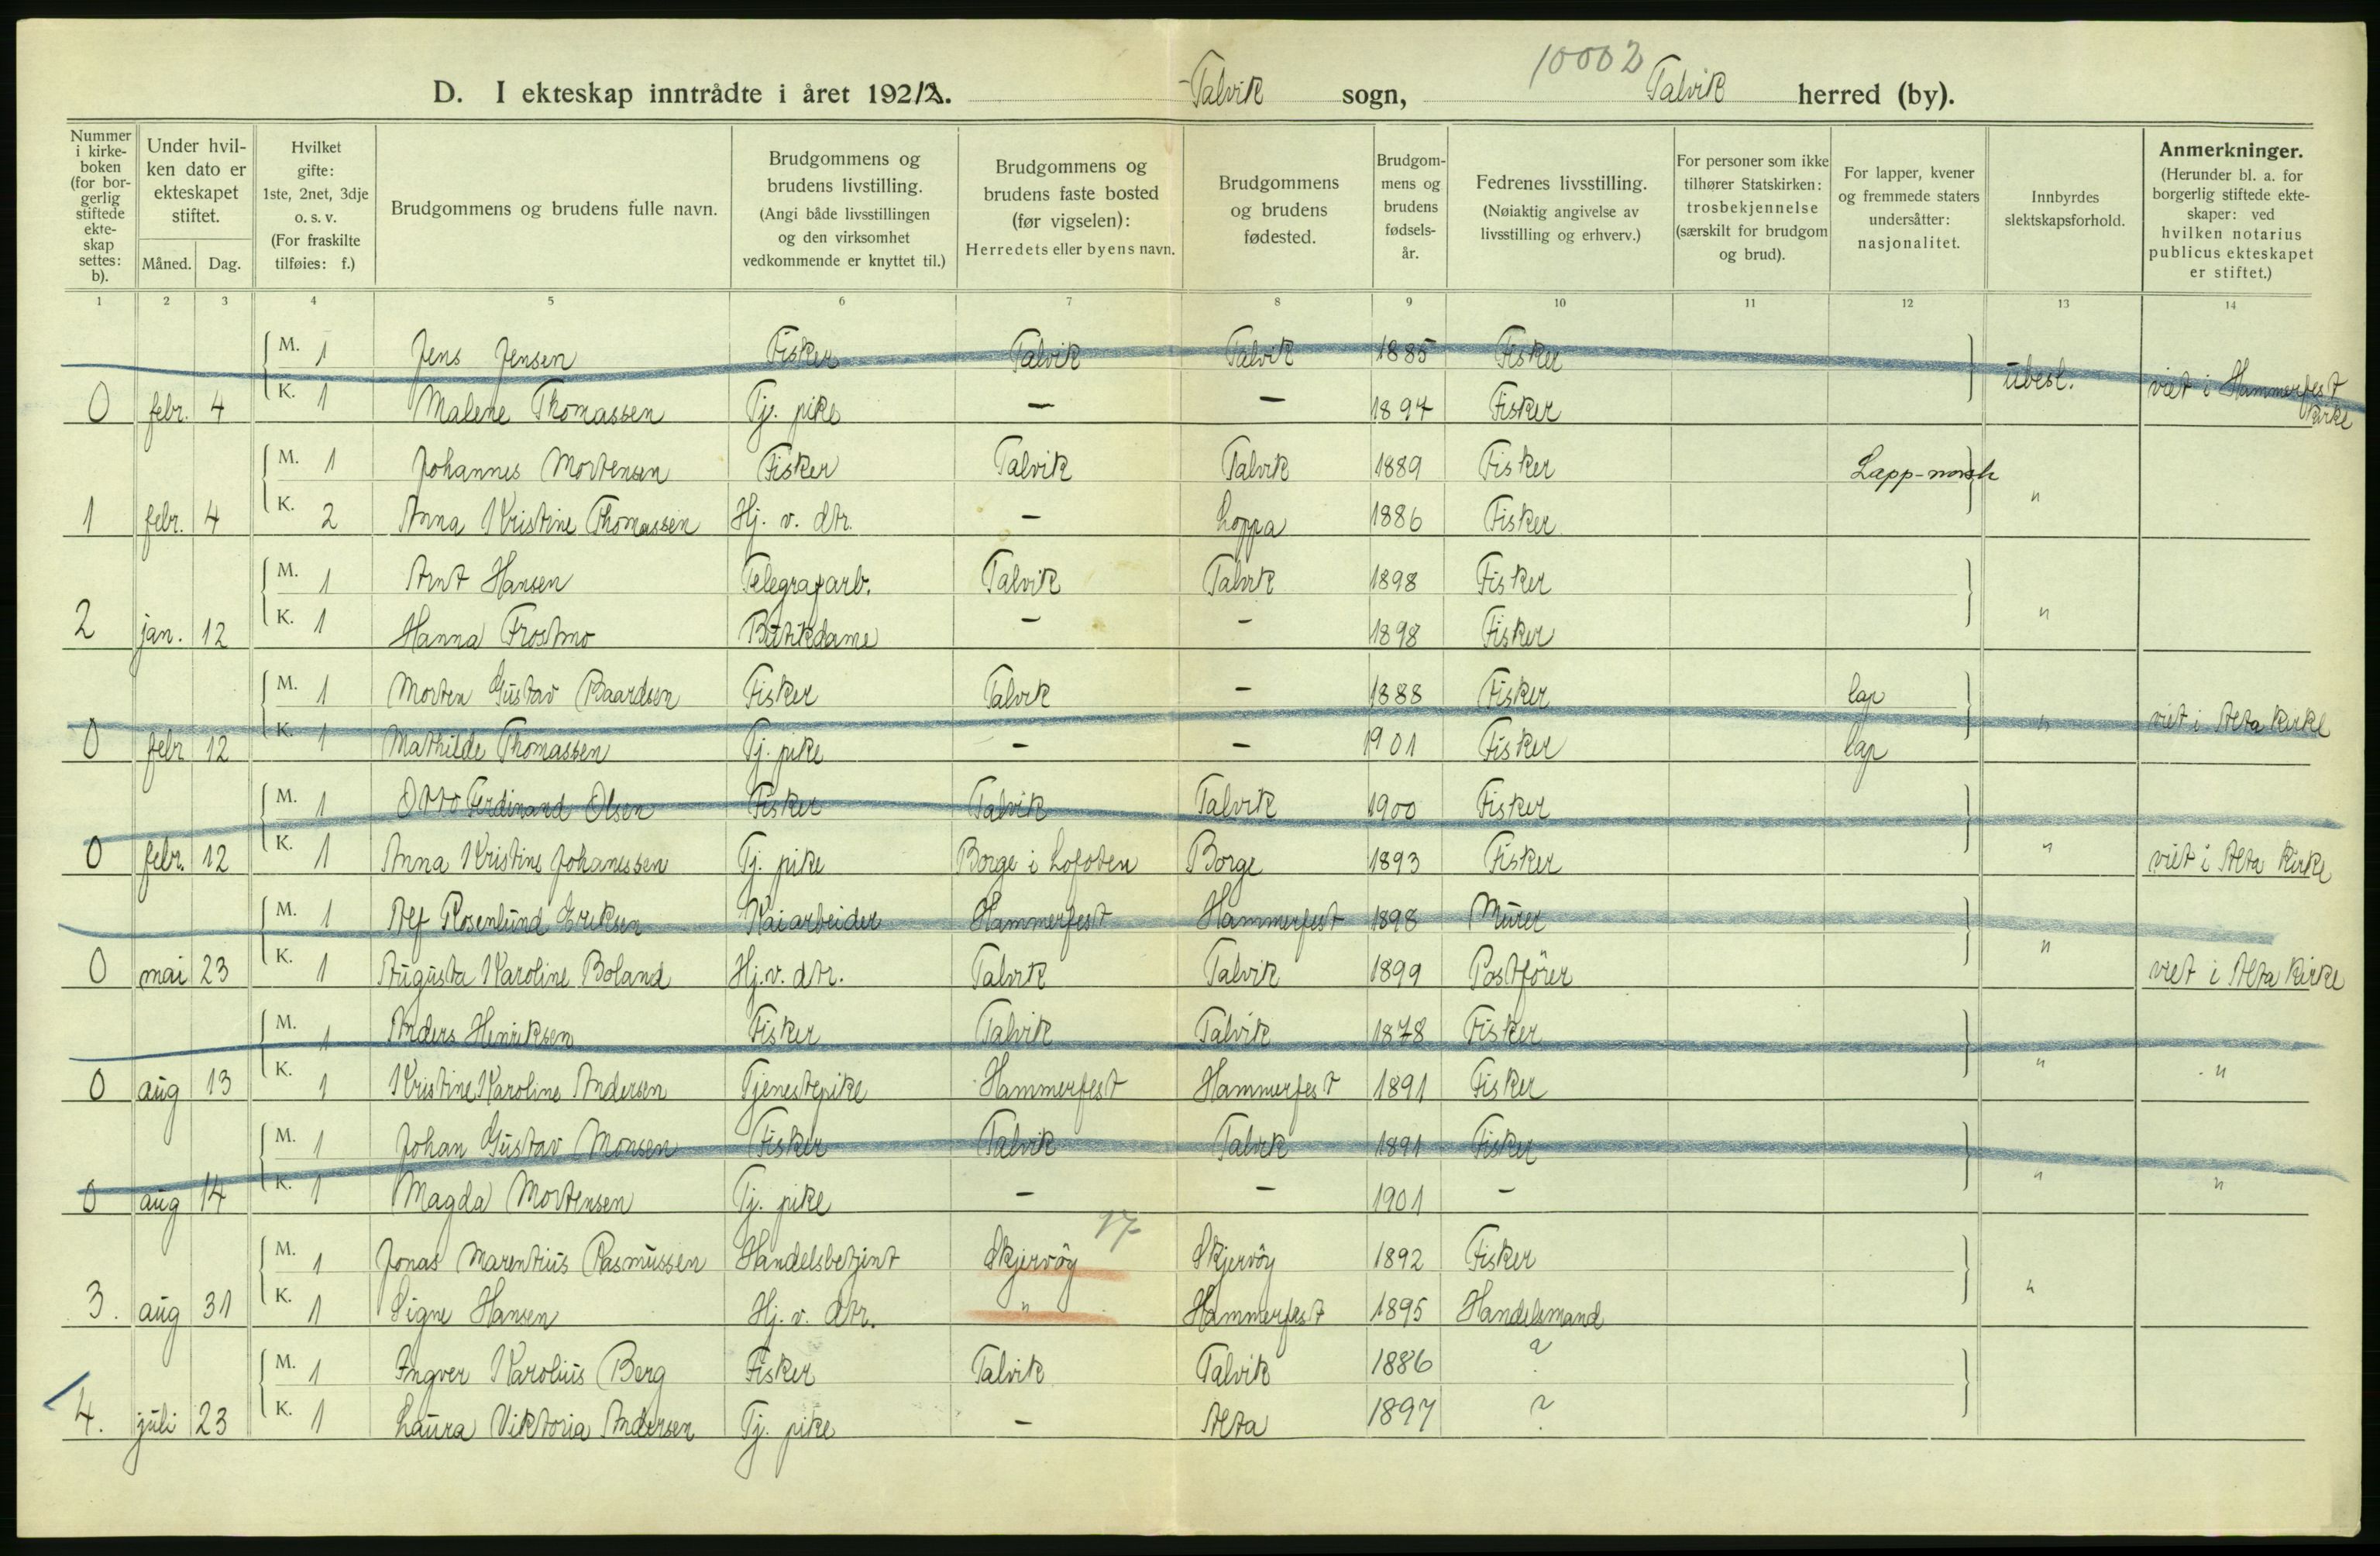 10002
D. I ekteskap inntrådte i året 1922. Talvik sogn, Talvik herred (by).
Nummer i kirkeboken (for borgerlig stiftede ekteskap settes: b).
Under hvilken dato er ekteskapet stiftet.
Måned. Dag.
Hvilket gifte: 1ste, 2net, 3dje o. s. v. (For fraskilte tilføies: f.)
Brudgommens og brudens fulle navn.
Brudgommens og brudens livstilling. (Angi både livsstillingen og den virksomhet vedkommende er knyttet til.)
Brudgommens og brudens faste bosted (før vigselen): Herredets eller byens navn.
Brudgommens og brudens fødested.
Brudgommens og brudens fødselsår.
Fedrenes livsstilling. (Nøiaktig angivelse av livsstilling og erhverv.)
For personer som ikke tilhører Statskirken: trosbekjennelse (særskilt for brudgom og brud).
For lapper, kvener og fremmede staters undersåtter: nasjonalitet.
Innbyrdes slektskapsforhold.
Anmerkninger. (Herunder bl. a. for borgerlig stiftede ekteskaper: ved hvilken notarius publicus ekteskapet er stiftet.)
1 2 3 4 5 6 7 8 9 10 11 12 13 14
M. 1 Jens Jensen Fisker Talvik Talvik 1885 Fisker ubesl. viet i Hammerfest kirke
0 febr. 4 K. 1 Malene Thomassen Tj. pike — — 1897 Fisker
M. 1 Johannes Mortensen Fisker Talvik Talvik 1889 Fisker Lapp-norsk
1 febr. 4 K. 2 Anna Kristine Thomassen Hj. v. dtr. — Loppa 1886 Fisker "
M. 1 Arnt Hansen Telegrafarb. Talvik Talvik 1898 Fisker
2 jan. 12 K. 1 Hanna Frostmo Butikdame — — 1898 Fisker "
M. 1 Morten Gustav Baardsen Fisker Talvik — 1888 Fisker lap
0 febr 12 K. 1 Mathilde Thomassen Tj. pike — — 1901 Fisker lap " viet i Alta kirke
M. 1 Otto Ferdinand Olsen Fisker Talvik Talvik 1900 Fisker
0 febr. 12 K. 1 Anna Kristine Johanssen Tj. pike Borge i Lofoten Borge 1893 Fisker " viet i Alta kirke
M. 1 Alf Rosenlund Eriksen Kaiarbeider Hammerfest Hammerfest 1898 Murer
0 mai 23 K. 1 Augusta Karoline Boland Hj. v. dtr. Talvik Talvik 1899 Postfører " viet i Alta kirke
M. 1 Anders Henriksen Fisker Talvik Talvik 1878 Fisker
0 aug 13 K. 1 Kristine Karoline Andersen Tjenestepike Hammerfest Hammerfest 1891 Fisker " "
M. 1 Johan Gustav Monsen Fisker Talvik Talvik 1891 Fisker
0 aug 14 K. 1 Magda Mortensen Tj. pike — — 1901 — " "
17
M. 1 Jonas Marentius Rasmussen Handelsbetjent Skjervöy Skjervöy 1892 Fisker
3. aug 31 K. 1 Signe Hansen Hj. v. dtr. " Hammerfest 1895 Handelsmand "
M. 1 Ingver Karolius Berg Fisker Talvik Talvik 1886 ?
4. juli 23 K. 1 Laura Viktoria Andersen Tj. pike — Alta 1897 ?